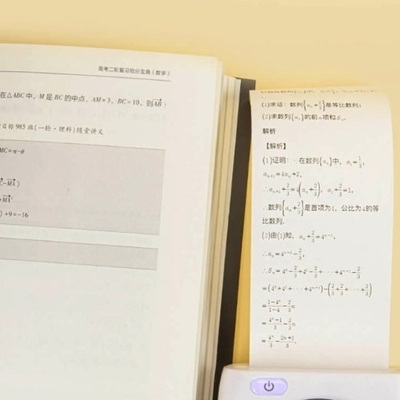 高考二轮复习抢分宝典（数学）
在△ABC中，M是BC的中点，AM=3，BC=10，则AB·
985班（一轮·理科）随堂讲义
MC=π-θ
-MA
+9=-16
(1)求证：数列{aₙ+2/3}是等比数列；
(2)求数列{aₙ}的前n项和Sₙ.
解析
【解析】
(1)证明：∵在数列{aₙ}中，a₁=1/3，
aₙ₊₁=4aₙ+2，
∴aₙ₊₁+2/3=4(aₙ+2/3)，a₁+2/3=1，
∴数列{aₙ+2/3}是首项为1，公比为4的等
比数列.
(2)由(1)知，aₙ+2/3=4ⁿ⁻¹，
∴aₙ=4ⁿ⁻¹-2/3，
∴Sₙ=4⁰-2/3+4¹-2/3+···+4ⁿ⁻¹-2/3
=(4⁰+4¹+···+4ⁿ⁻¹)-(2/3+2/3+···+2/3)
=(1-4ⁿ)/(1-4)-2/3n
=(4ⁿ-1)/3-2/3n
=4ⁿ/3-(2n+1)/3.